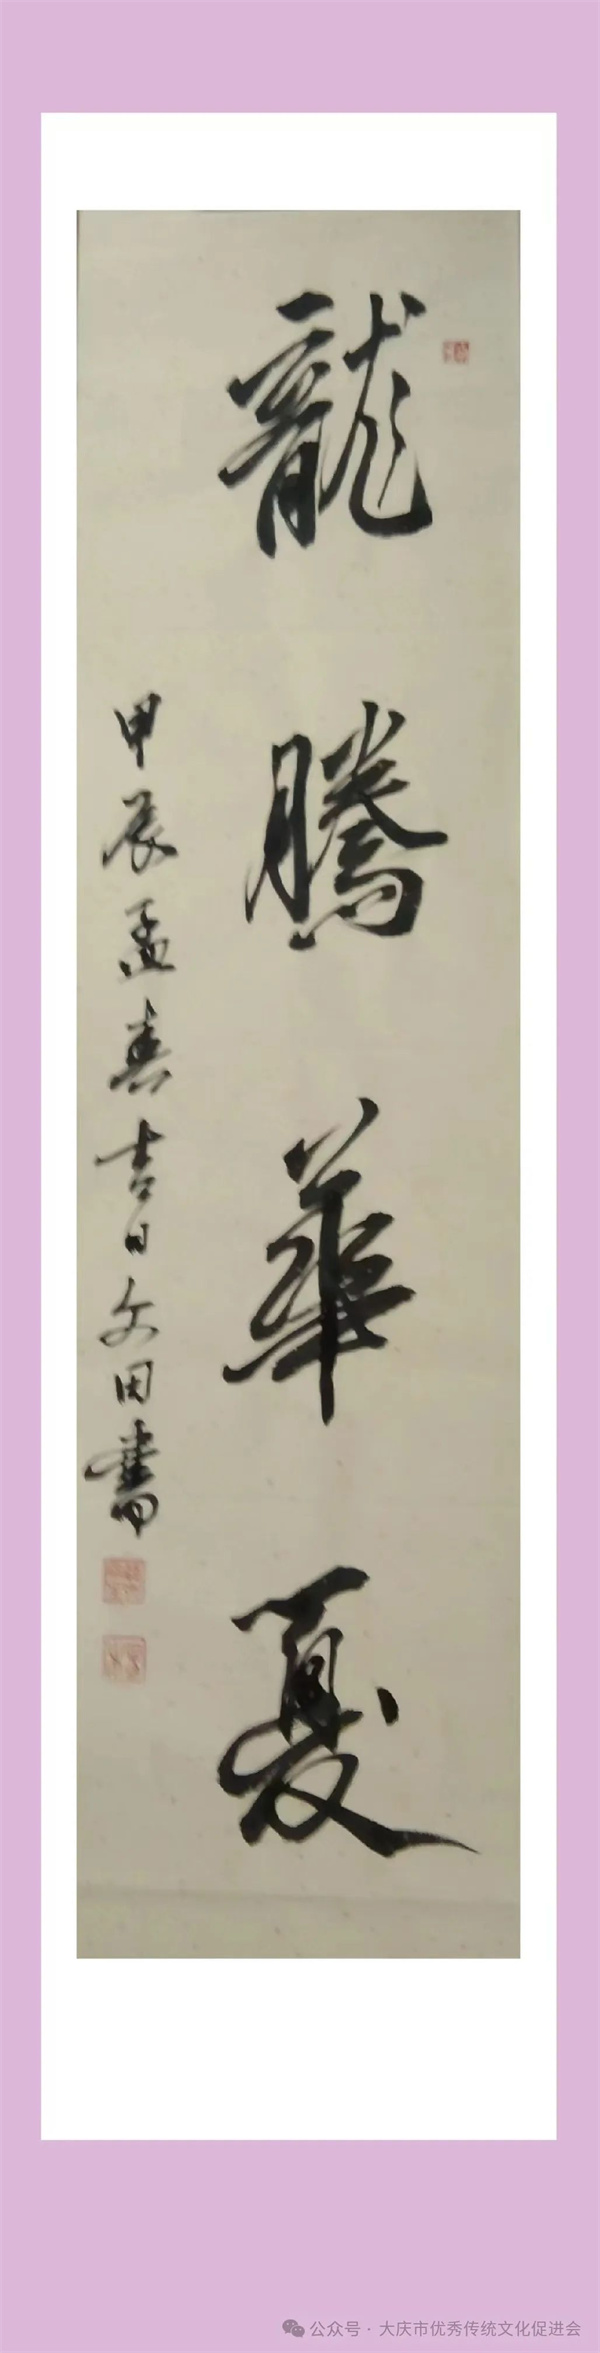 龍騰華夏
甲辰孟春吉日文田書
公众号·大庆市优秀传统文化促进会